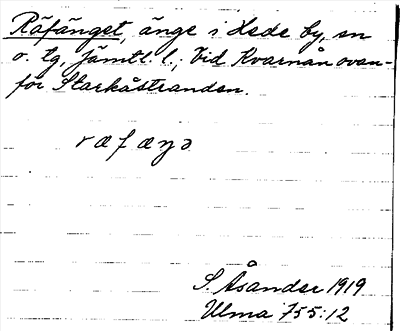 Räfänget, änge i Hede by, sn
o. tg, Jämtl. l.; Vid Kvarnån ovan-
för Starkåstranden.
ræfæŋə
S. Åsander 1919
Ulma 755:12